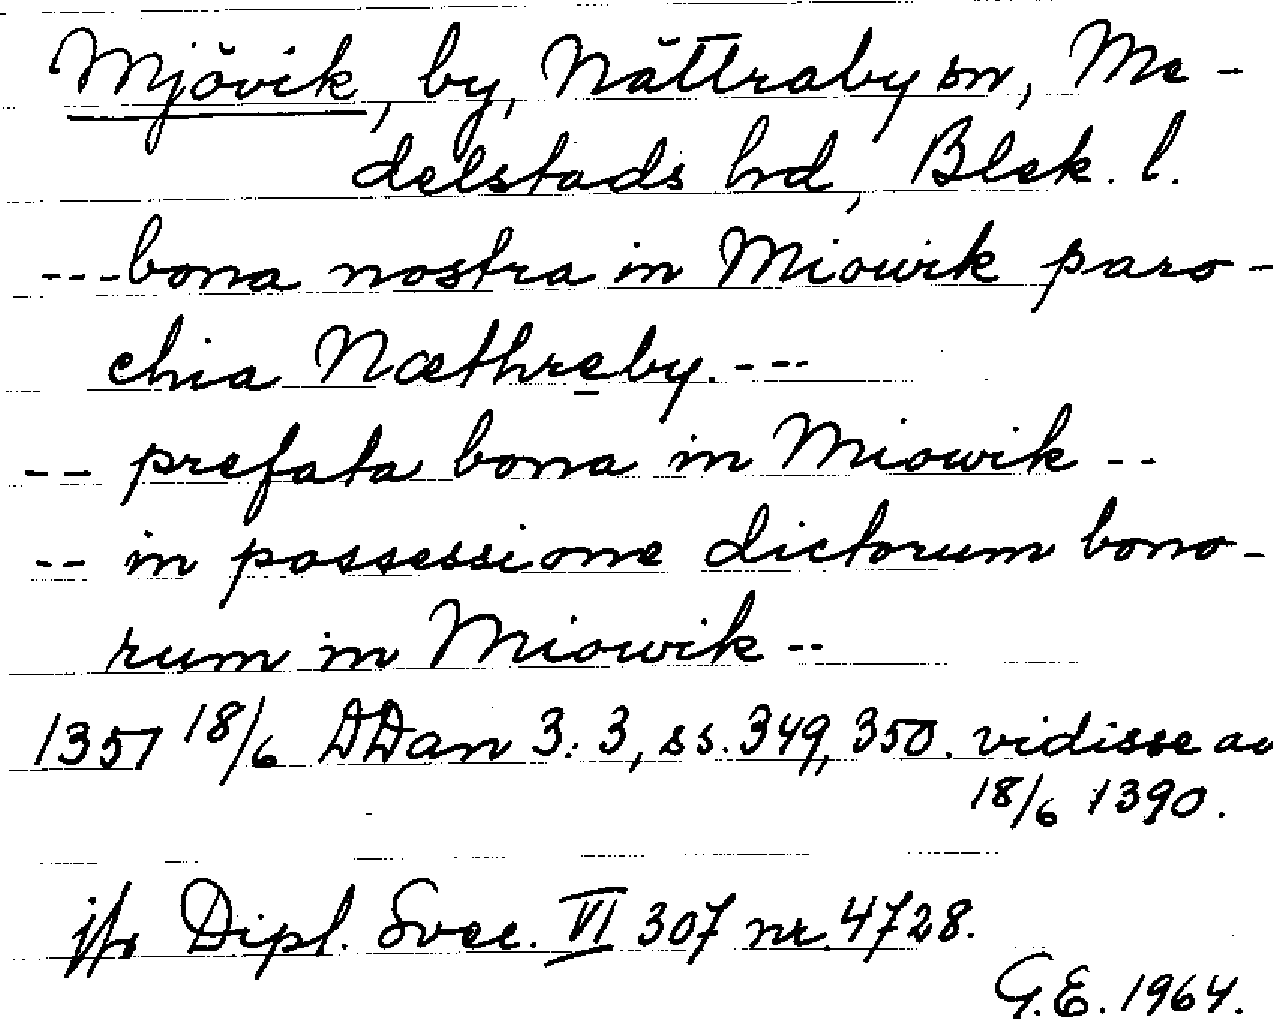 Mjövik, by, Nättraby sn, Me-
delstads hrd, Blek. l.
---bona nostra in Miowik paro-
chia Næthreby.---
-- prefata bona in Miowik --
-- in possessione dictorum bono-
rum in Miowik --
1357 18/6 DDan 3:3, ss. 349, 350. vidisse av
18/6 1390.
jfr Dipl. Svec. VI 307 nr. 4728.
G.E. 1964.